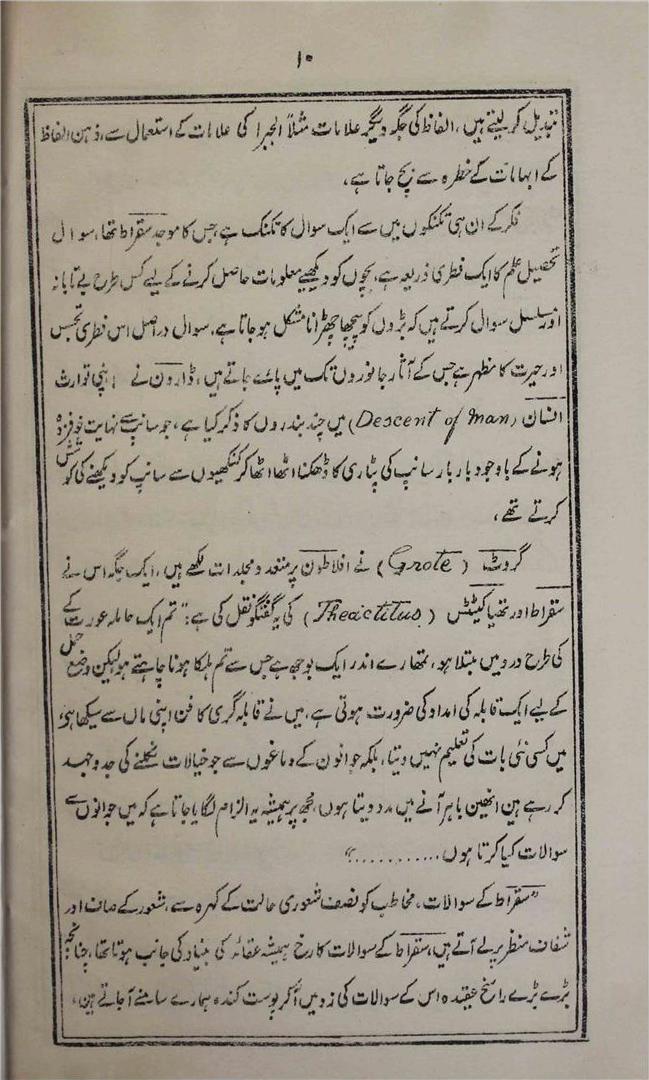 ۱۰
تبدیل کر لیتے ہیں، الفاظ کی جگہ دیگر علامات مثلاً الجبرا کی علامات کے استعمال سے، ذہن الفاظ
کے ابہامات کے خطرہ سے بچ جاتا ہے،
فکر کے ان ہی تکنکوں میں سے ایک سوال کا تکنک ہے جس کا موجد سقراط تھا، سوال
تحصیل علم کا ایک فطری ذریعہ ہے، بچوں کو دیکھیے معلومات حاصل کرنے کے لیے کس طرح بے تابانہ
اور مسلسل سوال کرتے ہیں کہ بڑوں کو پیچھا چھڑانا مشکل ہو جاتا ہے، سوال دراصل اس فطری تجسس
اور حیرت کا مظہر ہے جس کے آثار جانوروں تک میں پائے جاتے ہیں، ڈارون نے اپنی توارث
انسان (Descent of man) میں چند بندروں کا ذکر کیا ہے، جو سانپ سے نہایت خوفزدہ
ہونے کے باوجود بار بار سانپ کی پٹاری کا ڈھکنا اٹھا اٹھا کر کنکھیوں سے سانپ کو دیکھنے کی کوشش
کرتے تھے،
گروٹ (Grote) نے افلاطون پر متعدد مجلدات لکھے ہیں، ایک جگہ اس نے
سقراط اور تھیاکیٹٹس (Theactitus) کی یہ گفتگو نقل کی ہے: "تم ایک حاملہ عورت کے
کی طرح درد میں مبتلا ہو، تمھارے اندر ایک بوجھ ہے جس سے تم ہلکا ہونا چاہتے ہو لیکن وضع حمل
کے لیے ایک قابلہ کی امداد کی ضرورت ہوتی ہے، میں نے قابلہ گری کا فن اپنی ماں سے سیکھا ہے،
میں کسی نئی بات کی تعلیم نہیں دیتا، بلکہ جوانوں کے دماغوں سے جو خیالات نکلنے کی جدوجہد
کر رہے ہین انھین باہر آنے میں مدد دیتا ہوں، مجھ پر ہمیشہ یہ الزام لگایا جاتا ہے کہ میں جوانوں سے
سوالات کیا کرتا ہوں..........."
"سقراط کے سوالات، مخاطب کو نصف شعوری حالت کے کہرہ سے، شعور کے صاف اور
شفاف منظر پر لے آتے ہیں، سقراط کے سوالات کا رخ ہمیشہ عقائد کی بنیاد کی جانب ہوتا تھا، چنانچہ
بڑے بڑے راسخ عقیدہ اس کے سوالات کی زد میں آ کر پوست کندہ ہمارے سامنے آ جاتے ہین،